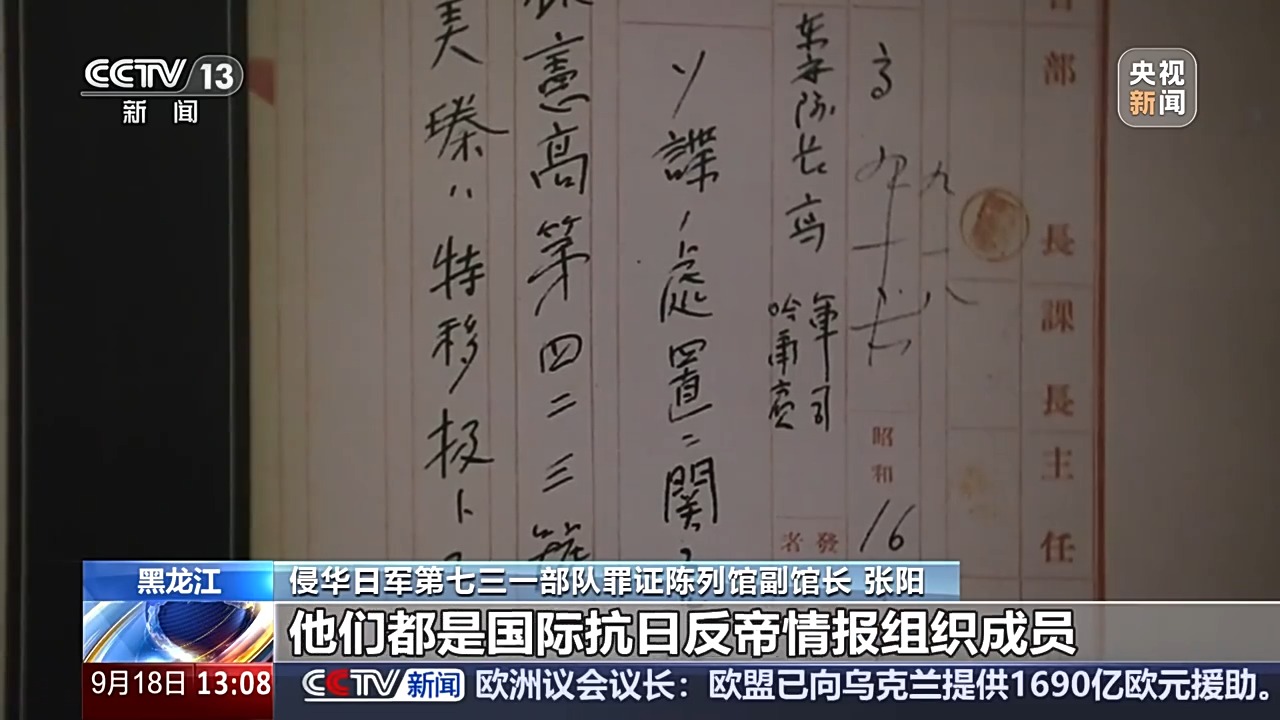 CCTV 13
新闻
央视
新闻
部長
課長
主任
昭和
16
發者
軍司
ソ諜ノ處置ニ関
憲高第四二三
ハ特移扱ト
黑龙江
侵华日军第七三一部队罪证陈列馆副馆长 张阳
他们都是国际抗日反帝情报组织成员
9月18日 13:08
CCTV 新闻 欧洲议会议长：欧盟已向乌克兰提供1690亿欧元援助。